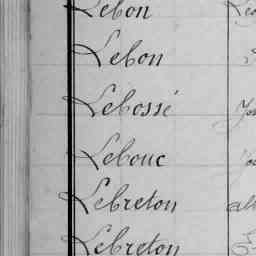 Lebon
Lebon
Lebossé
Lebouc
Lebreton
Lebreton